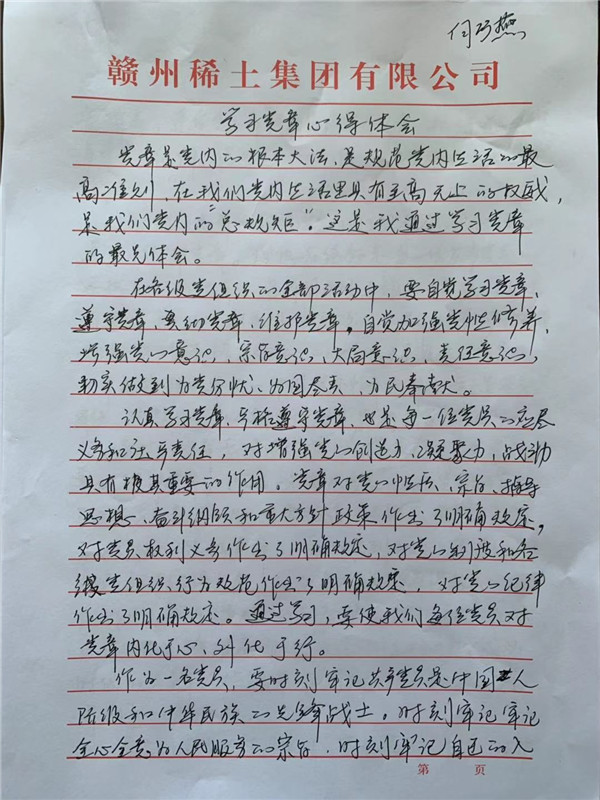 何巧燕
赣州稀土集团有限公司
学习党章心得体会
党章是党内的根本大法，是规范党内生活的最
高准则，在我们党内生活里具有至高无上的权威，
是我们党内的“总规矩”。这是我通过学习党章
的最先体会。
在各级党组织的全部活动中，要自觉学习党章、
遵守党章、贯彻党章、维护党章。自觉加强党性修养，
增强党的意识、宗旨意识、大局意识、责任意识，
切实做到为党分忧、为国尽责、为民奉献。
认真学习党章，严格遵守党章，也是每一位党员的应尽
义务和庄严责任，对增强党的创造力、凝聚力、战斗力
具有极其重要的作用。党章对党的性质、宗旨、指导
思想、奋斗纲领和重大方针政策作出了明确规定，
对党员权利义务作出了明确规定，对党的制度和各
级党组织行为规范作出了明确规定，对党的纪律
作出了明确规定。通过学习，要使我们每位党员对
党章内化于心、外化于行。
作为一名党员，要时刻牢记共产党员是中国工人
阶级和中华民族的先锋战士。时刻牢记牢记
全心全意为人民服务的宗旨，时刻牢记自己的入
第 页